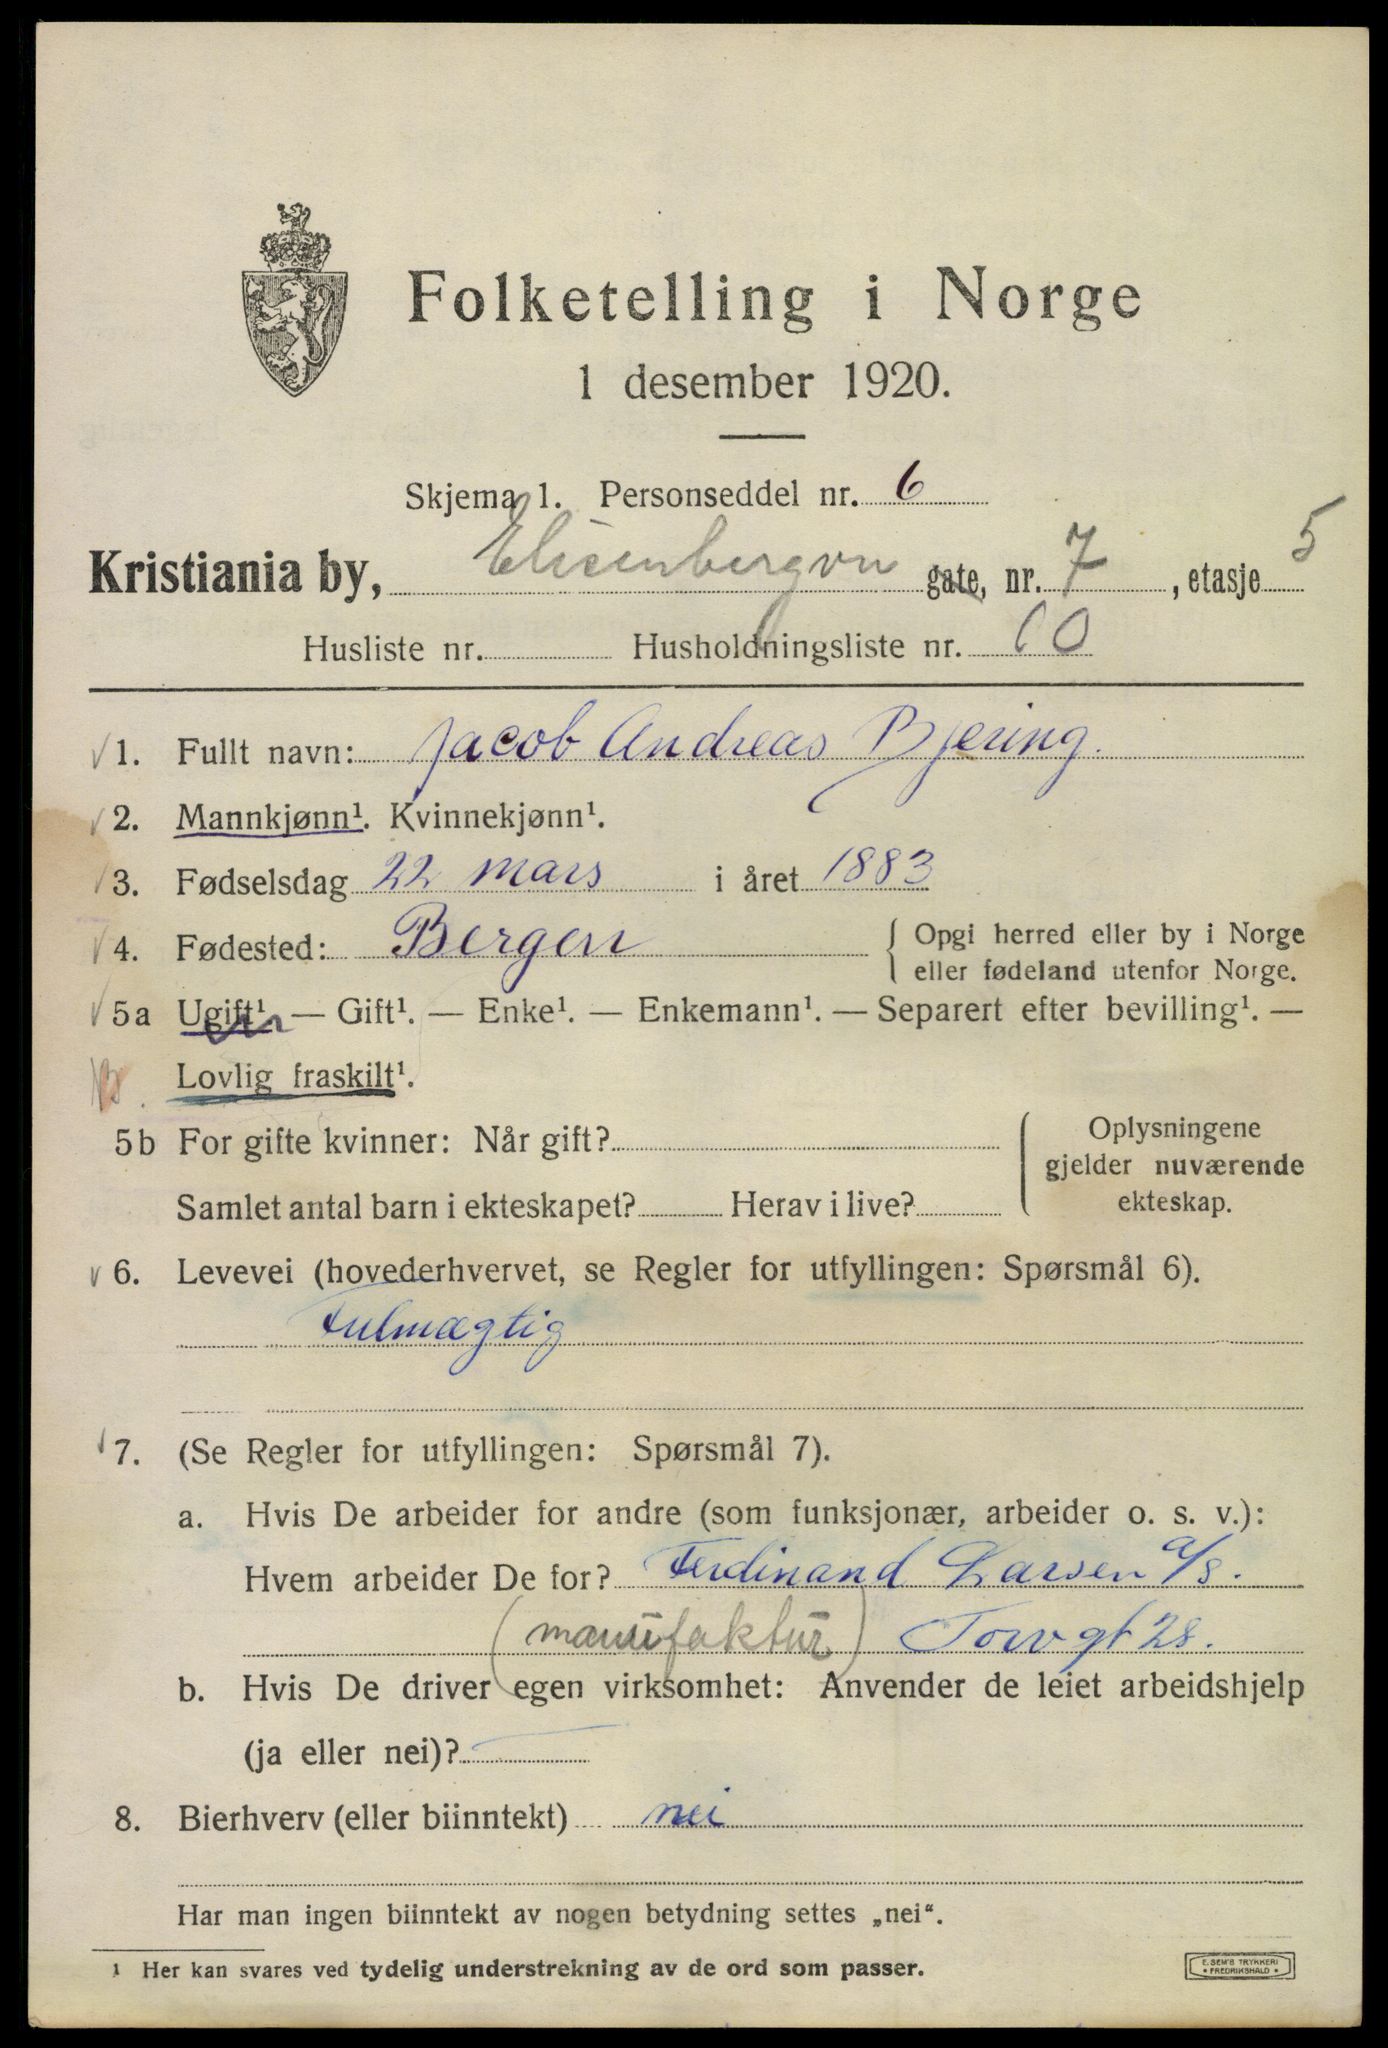 Folketelling i Norge
1 desember 1920.
Skjema 1. Personseddel nr. 6
Kristiania by, Elisenbergvn gate, nr. 7, etasje 5
Husliste nr. Husholdningsliste nr. 10
1. Fullt navn: Jacob Andreas Bjering.
2. Mannkjønn¹. Kvinnekjønn¹.
3. Fødselsdag 22 mars i året 1883
4. Fødested: Bergen { Opgi herred eller by i Norge
eller fødeland utenfor Norge.
5a Ugift¹ — Gift¹. — Enke¹. — Enkemann¹. — Separert efter bevilling¹. —
Lovlig fraskilt¹.
5b For gifte kvinner: Når gift?
Samlet antal barn i ekteskapet? Herav i live?
Oplysningene
gjelder nuværende
ekteskap.
6. Levevei (hovederhvervet, se Regler for utfyllingen: Spørsmål 6).
Fulmægtig
7. (Se Regler for utfyllingen: Spørsmål 7).
a. Hvis De arbeider for andre (som funksjonær, arbeider o. s. v.):
Hvem arbeider De for? Ferdinand Larsen a/s.
(manufaktur) Torvgt 28.
b. Hvis De driver egen virksomhet: Anvender de leiet arbeidshjelp
(ja eller nei)?
8. Bierhverv (eller biinntekt) nei
Har man ingen biinntekt av nogen betydning settes „nei“.
¹ Her kan svares ved tydelig understrekning av de ord som passer.
E. SEM'S TRYKKERI
• FREDRIKSHALD •